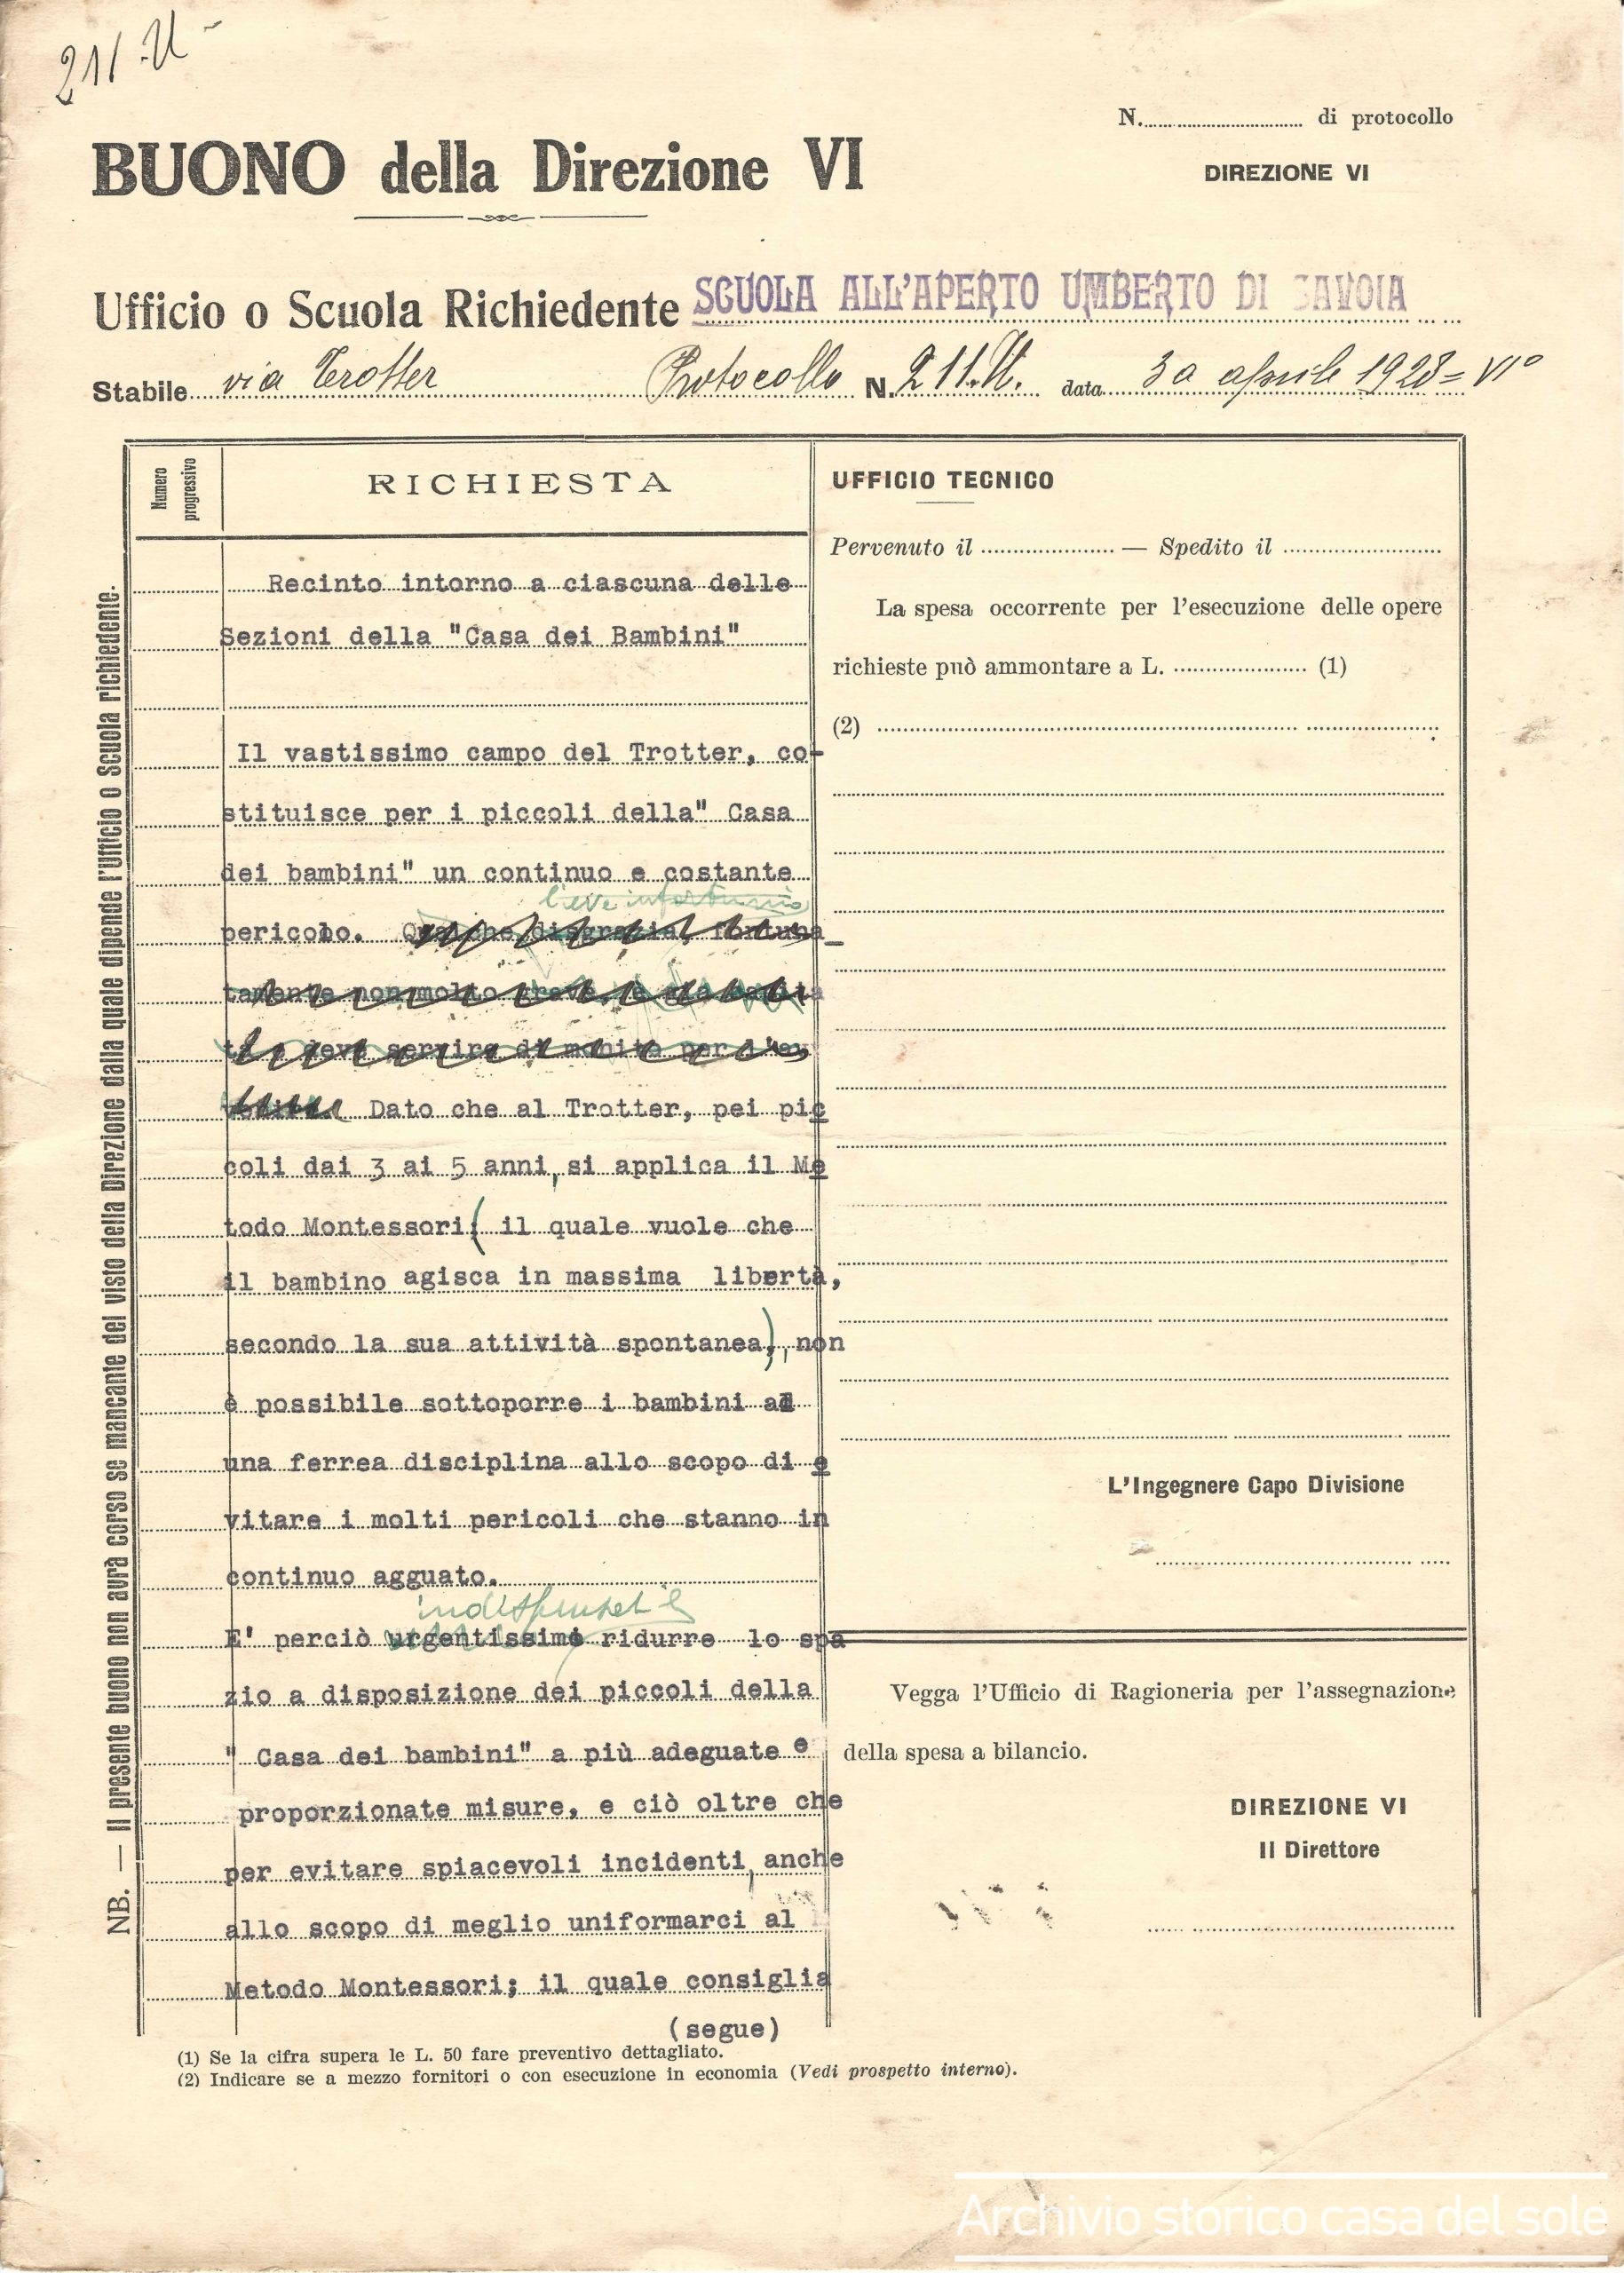 211.U
N. di protocollo
BUONO della Direzione VI
DIREZIONE VI
Ufficio o Scuola Richiedente SCUOLA ALL'APERTO UMBERTO DI SAVOIA
Stabile via Trotter Protocollo N. 211.U. data 30 aprile 1928= VI°
Numero
progressivo
RICHIESTA
Recinto intorno a ciascuna delle
Sezioni della "Casa dei Bambini"
Il vastissimo campo del Trotter, co-
stituisce per i piccoli della" Casa
dei bambini" un continuo e costante
lieve infortunio
pericolo. Qualche disgrazia, fortuna_
tamente non molto grave, è già
deve servire di monito per
Dato che al Trotter, pei pic
coli dai 3 ai 5 anni, si applica il Me
todo Montessori ( il quale vuole che
il bambino agisca in massima libertà,
secondo la sua attività spontanea), non
è possibile sottoporre i bambini ad
una ferrea disciplina allo scopo di e
vitare i molti pericoli che stanno in
continuo agguato.
indispensabile
E' perciò urgentissimo ridurre lo spa
zio a disposizione dei piccoli della
" Casa dei bambini" a più adeguate e
proporzionate misure, e ciò oltre che
per evitare spiacevoli incidenti, anche
allo scopo di meglio uniformarci al
Metodo Montessori; il quale consiglia
(segue)
UFFICIO TECNICO
Pervenuto il — Spedito il
La spesa occorrente per l'esecuzione delle opere
richieste può ammontare a L. (1)
(2)
L'Ingegnere Capo Divisione
Vegga l'Ufficio di Ragioneria per l'assegnazione
della spesa a bilancio.
DIREZIONE VI
Il Direttore
NB. — Il presente buono non avrà corso se mancante del visto della Direzione dalla quale dipende l'Ufficio o Scuola richiedente.
(1) Se la cifra supera le L. 50 fare preventivo dettagliato.
(2) Indicare se a mezzo fornitori o con esecuzione in economia (Vedi prospetto interno).
Archivio storico casa del sole